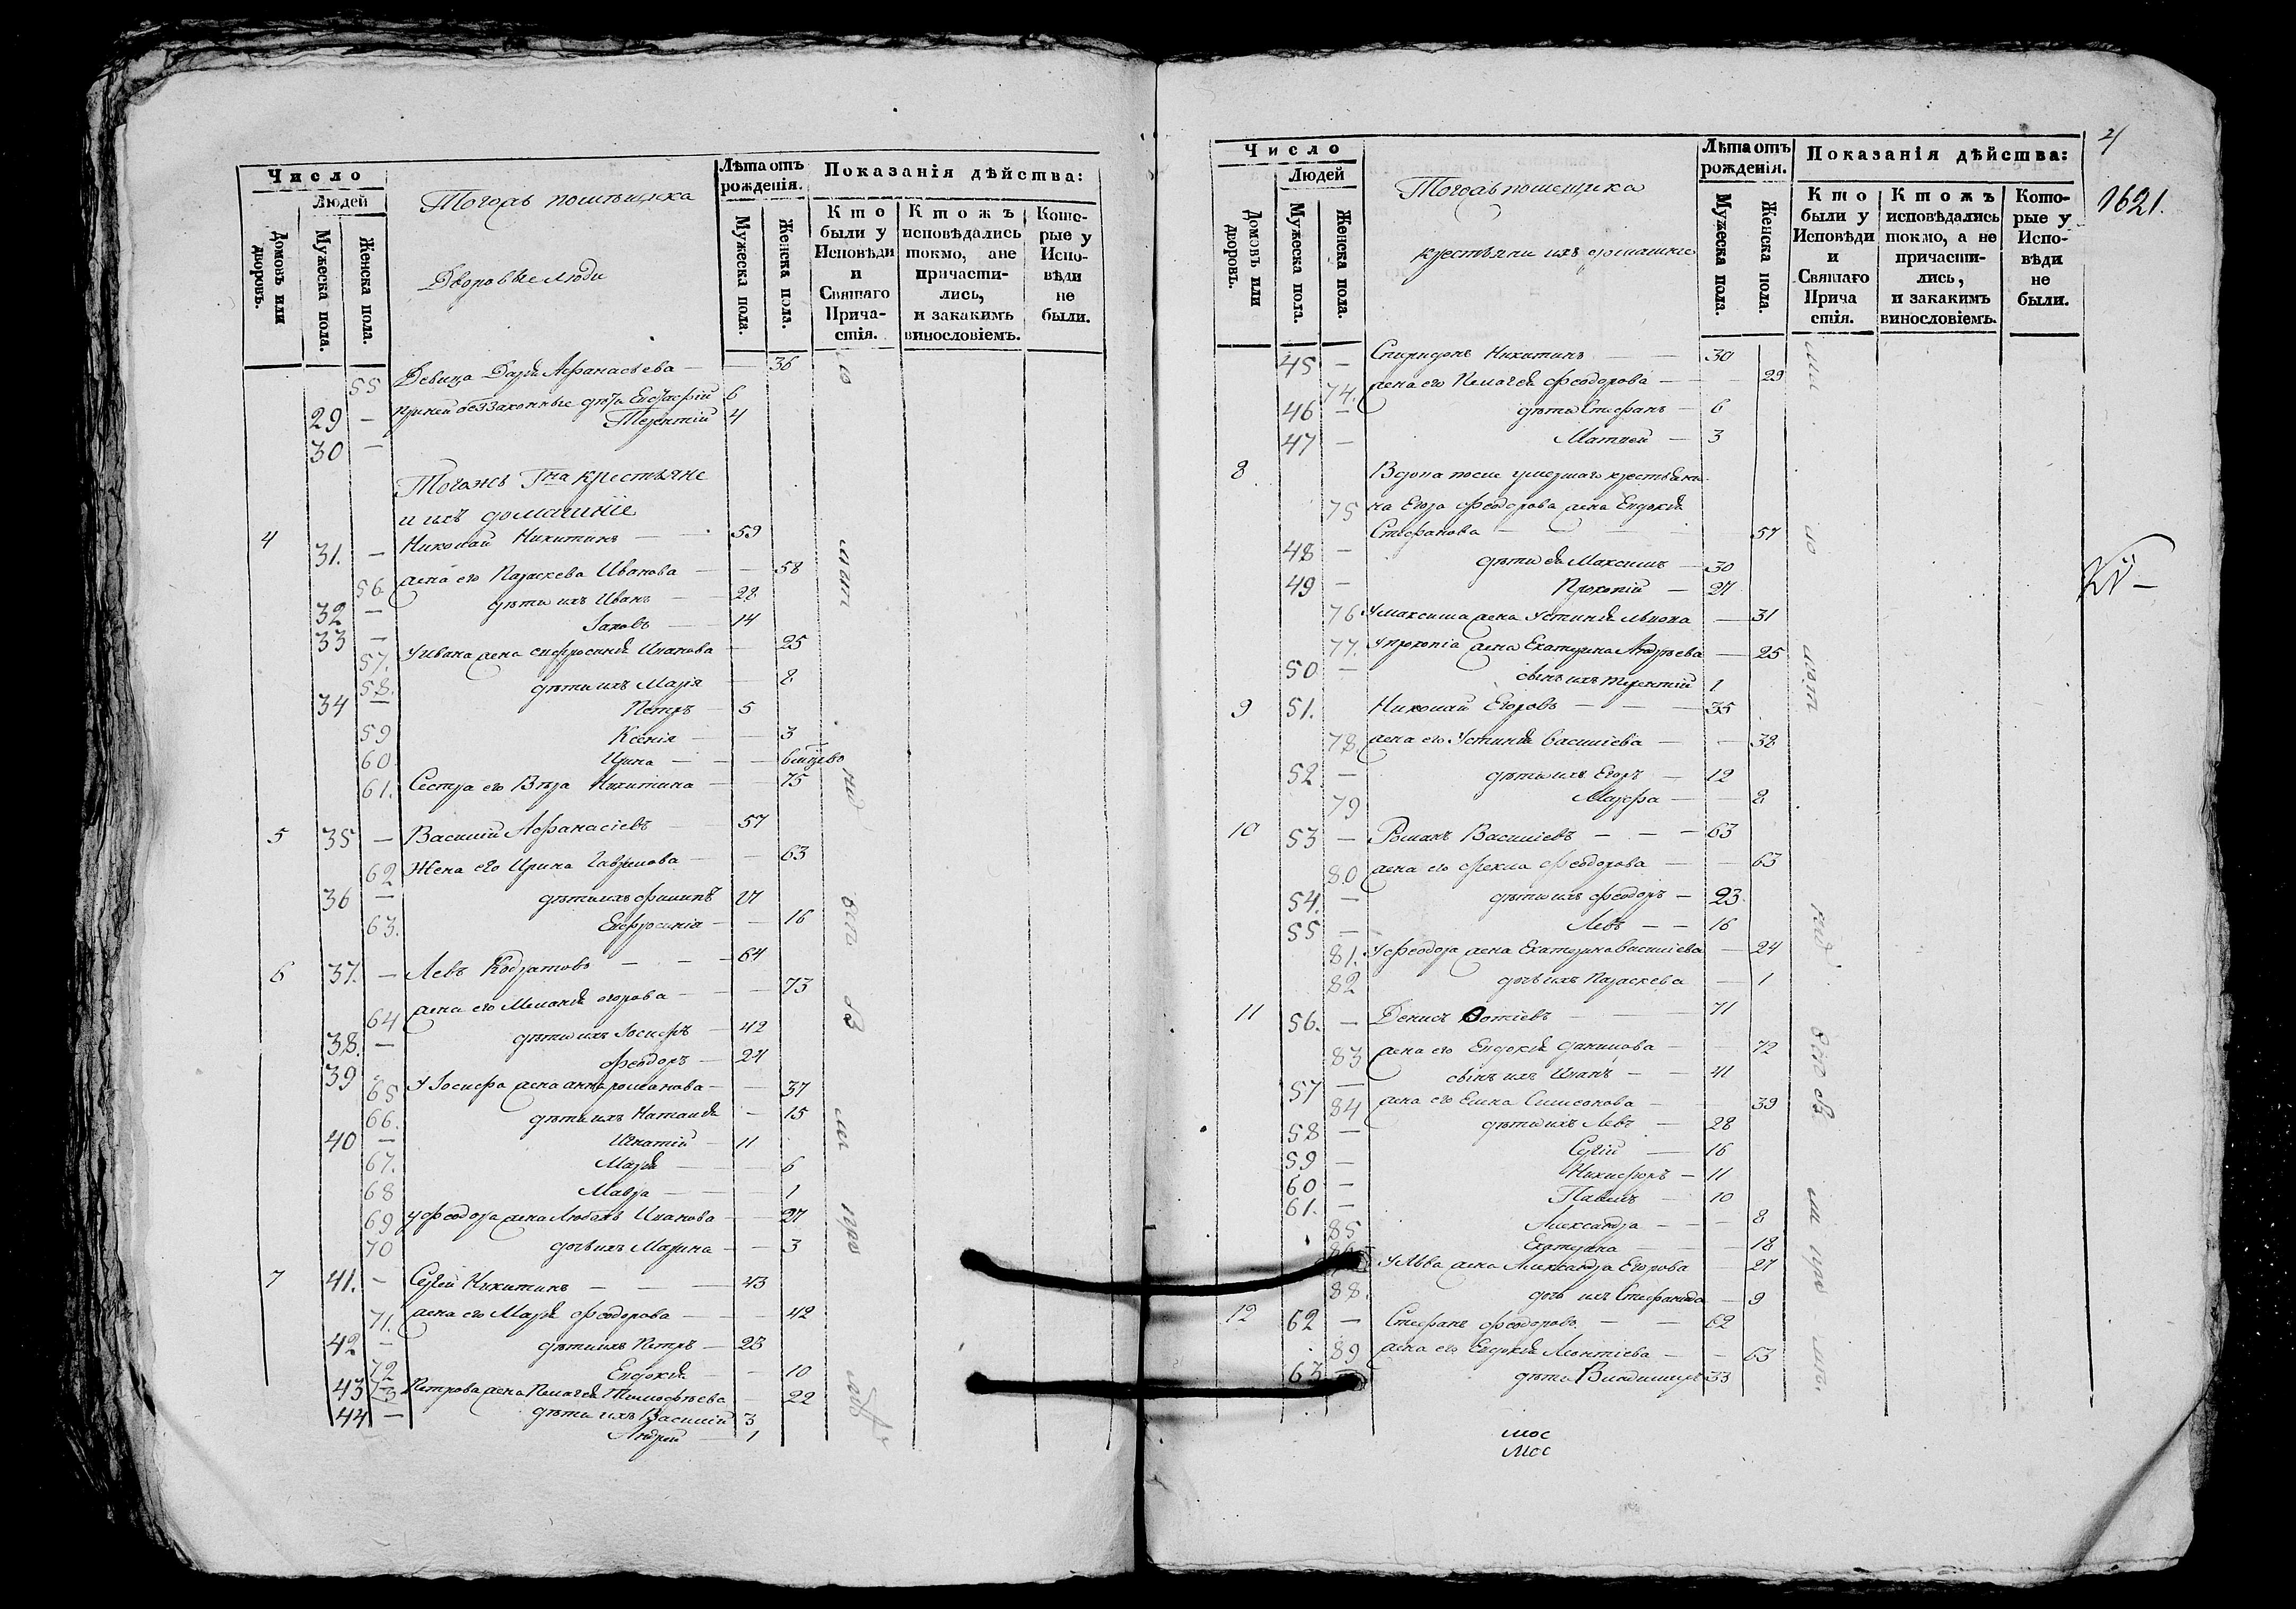 Число
Людей
Домовъ или дворовъ.
Мужеска пола.
Женска пола.
Тогожъ помѣщика
Дворовые люди
Лѣта отъ рожденія.
Мужеска пола.
Женска пола.
Показанія дѣйства:
Кто были у Исповѣди и Святаго Прича-стія.
Ктожъ исповѣдались токмо, а не причасти-лись, и закакимъ винословіемъ.
Кото-рые у Испо-вѣди не были.
55 Девица Дарья Афанасьева — — 36
29 — у ней беззаконные дѣти 6
30 — Терентій 4
Тогожъ Гна крестьяне
и ихъ домашніе
4 31. — Николай Никитинъ — 59
56 жена его Параскева Иванова — — 58
32 — дѣти ихъ Иванъ — 28
33 — Іаковъ — 14
57. У Ивана жена Евфросинія Иванова — 25
58. дѣти ихъ Марія — 8
34 — Петръ — 5
59 Ксенія — — 3
60. Ирина — —
61. Сестра его Вѣра Никитина — 75
5 35 — Василій Афанасіевъ — 57
62 Жена его Ирина Гаврилова — — 63
36 — дѣти ихъ Филипъ 27
63. Евфросинія — — 16
6 37. — Левъ Кодратовъ — — 64
64 жена его Меланія Егорова — — 73
38. — дѣти ихъ Іосифъ — 42
39 Феодоръ — 24
65 У Іосифа жена Анна Романова — — 37
66. дѣти ихъ Наталія — 15
40 — Игнатій — 11
67. Марія — — 6
68 Мавра — — 1
69 У Феодора жена Любовь Иванова — — 27
70 дочь ихъ Марина — — 3
7 41. — Сергей Никитинъ — — 43
71. жена его Марія Феодорова — — 42
42 — дѣти ихъ Петръ — 23
72 Евдокія — — 10
43 73 Петрова жена Пелагея Тимофѣева — 22
44 — дѣти ихъ Василій 3
Андрей — 1
Число
Людей
Домовъ или дворовъ.
Мужеска пола.
Женска пола.
Тогожъ помещика
крестьяни ихъ домашніе
Лѣта отъ рожденія.
Мужеска пола.
Женска пола.
Показанія дѣйства:
Кто были у Исповѣди и Святаго Прича стія.
Ктожъ исповѣдались токмо, а не причасти-лись, и закакимъ винословіемъ.
Кото-рые у Испо-вѣди не были.
1621.
45 — Спиридонъ Никитинъ — — 30
74. жена его Пелагея Феодорова — — 29
46 — дѣти Стефанъ — 6
47 — Матвей — 3
8 Вдова после умершаго крестьяни-
75 на Егора Феодорова жена Евдокія
Стефанова — — 57
48 — дѣти ея Максимъ — 30
49 — Прокопій — 27
76 У Максима жена Устинія Львова — 31
77. У Прокопія жена Екатерина Андреева — 25
50 — сынъ ихъ Терентий 1
9 51. Николай Егоровъ — — — 35
78. жена его Устинія Василіева — — 38
52 — дѣти ихъ Егоръ — 12
79 Марфа — — 8
10 53 — Романъ Василіевъ — — — 63
80 жена его Фекла Феодорова — — 63
54. — дѣти ихъ Феодоръ — 23
55 — Левъ — — 16
81. У Феодора жена Екатерина Василіева — 24
82 дочь ихъ Параскева — 1
11 56. — Денисъ Фотіевъ — — 71
83 жена его Евдокія Данилова — — 72
57 — сынъ ихъ Иванъ — — 41
84 жена его Елена Симеонова — — 39
58 — дѣти ихъ Левъ — 28
59 — Сергій — 16
60 — Никифоръ — 11
61. — Павелъ — 10
85 Александра — — — 8
86 Екатерина — — 18
У Льва жена Александра Егорова — 27
88. дочь ихъ Стефанида — 9
12 62 — Стефанъ Феодоровъ — — 62
89 жена его Евдокія Леонтіева — — 63
63 — дѣти Владимиръ 33